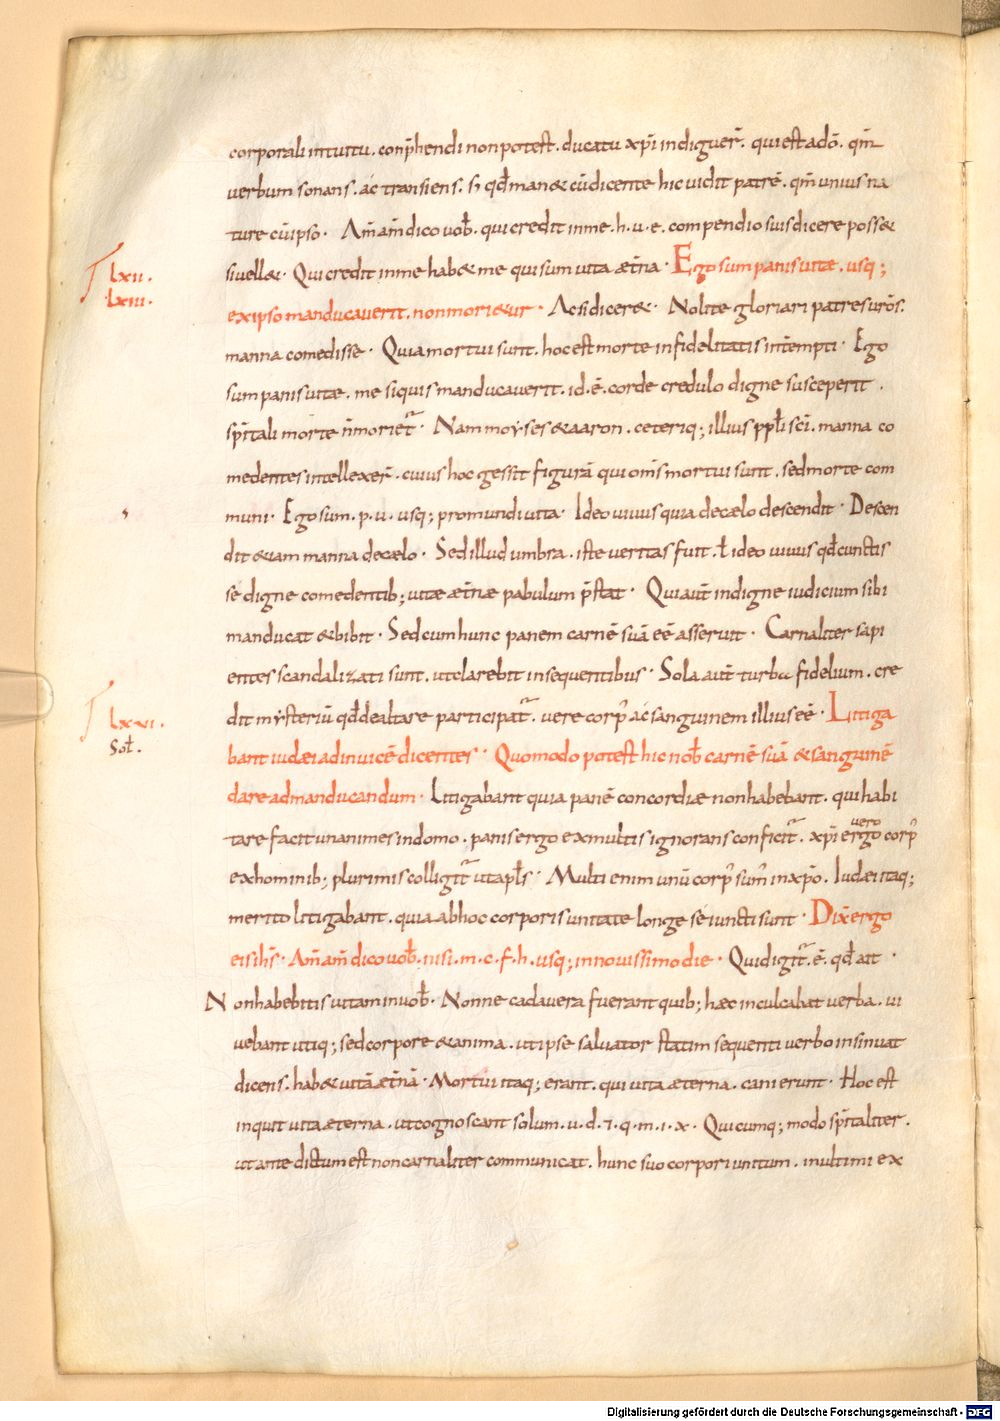 corporali intuitu. conp̄hendi non potest. ducatu xp̄i indiguer̄. qui est ad ō. qm̄
verbum sonans. ac transiens. s; qđ man& cū dicente hic vidit patrē. qm̄ unius na
ture cū ipso. Am̄ am̄ dico vob̄. qui credit in me. h. u. e. compendio suis dicere poss&
si vell&. Qui credit in me hab& me qui sum vita æt̄na. Ego sum panis vitæ. usq;
lxii.
lxiii.
ex ipso manducaverit. non mori&ur. Ac si dicer&. Nolite gloriari patres ur̄os.
manna comedisse. Quia mortui sunt. hoc est morte infidelitatis int̄empti. Ego
sum panis vitæ. me si quis manducaverit. id. ē. corde credulo digne susceperit.
sp̄itali morte n̄ moriet̄. Nam moyses & aaron. ceteriq; illius ppl̄i sc̄i. manna co
medentes intellexer̄. cuius hoc gessit figurā qui om̄s mortui sunt. sed morte com
muni. Ego sum. p. u. usq; pro mundi vita. Ideo vivus quia de cælo descendit. Descen
dit &iam manna de cælo. Sed illud umbra. iste veritas fuit. ł ideo vivus qđ cunctis
se digne comedentib; vitæ æt̄næ pabulum p̄stat. Qui aut̄ indigne iudicium sibi
manducat & bibit. Sed cum hunc panem carnē suā eē asseruit. Carnaliter sapi
entes scandalizati sunt. ut clarebit in sequentibus. Sola aut̄ turba fidelium. cre
dit mysteriū qđ de altare participat̄. vere corp̄ ac sanguinem illius eē. Litiga
lxvi.
Sol̄.
bant iudæi ad invicē dicentes. Quomodo potest hic nob̄ carnē suā & sanguinē
dare ad manducandum. Litigabant quia panē concordiæ non habebant. qui habi
tare facit unanimes in domo. panis ergo ex multis ignorans conficit̄. xp̄i ergo corp̄
vero
ex hominib; plurimis colligit̄ ut ap̄ls. Multi enim unū corp̄ sum̄ in xp̄o. Iudæi itaq;
merito litigabant. quia ab hoc corporis unitate longe seiuncti sunt. Dix̄ ergo
eis ih̄s. Am̄ am̄ dico vob̄. nisi. m. c. f. h. usq; in novissimo die. Quid igit̄. ē. qđ ait.
Non habebitis vitam in vob̄. Nonne cadavera fuerant quib; hæc inculcabat verba. vi
vebant utiq; sed corpore & anima. ut ipse salvator statim sequenti verbo insinuat
dicens. hab& vitā æt̄nā. Mortui itaq; erant. qui vita æterna. canierunt. Hoc est
inquit vita æterna. ut cognoscant solum. u. d. ⁊. q. m. i. x. Quicumq; modo sp̄italiter.
ut ante dictum est non carnaliter communicat. hunc suo corpori unitum. in ultimi ex
Digitalisierung gefördert durch die Deutsche Forschungsgemeinschaft - DFG